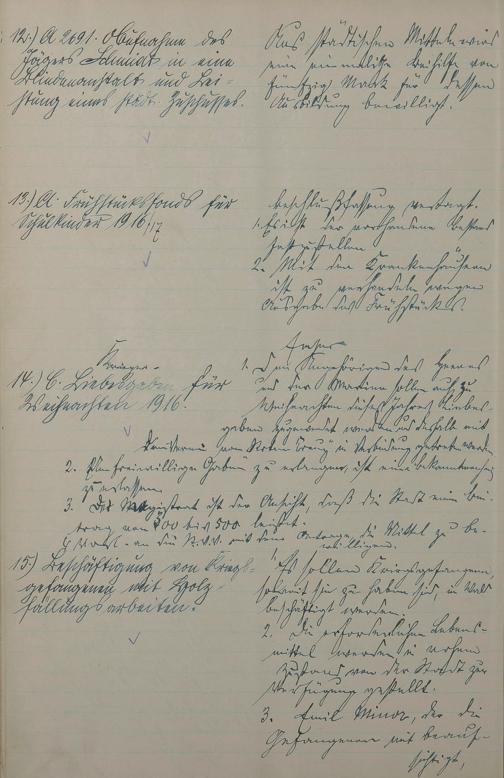 12.) A 2691. Aufnahme des
Jägers Schmidt in eine
Blindenanstalt und Lei-
stung eines städt. Zuschusses.
Aus städtischen Mitteln wird
eine einmalige Beihilfe von
fünfzig Mark für dessen
Ausbildung bewilligt.
13.) A. Frühstücksfonds für
Schulkinder 1916/17
Beschlußfassung vertagt.
1. Es ist der vorhandene Bestand
festzustellen
2. Mit den Krankenhäusern
ist zu verhandeln wegen
Ausgabe des Frühstücks.
14.) C. Krieger-
Liebesgaben für
Weihnachten 1916.
1. Den Angehörigen des Heeres
und der Marine sollen auch zu
Weihnachten dieses Jahres Liebes-
gaben zugewendet werden und deshalb mit
dem Verein vom Roten Kreuz in Verbindung getreten werden
2. Um freiwillige Gaben zu erlangen, ist eine Bekanntmachung
zu erlassen.
3. Der Magistrat ist der Ansicht, daß die Stadt einen Bei-
trag von 300 bis 500 leistet.
4. Vorl. an die St.V.V. mit dem Antrage, die Mittel zu be-
willigen.
15.) Beschäftigung von Kriegs-
gefangenen mit Holz-
fällungsarbeiten.
1. Es sollen Kriegsgefangene,
soweit sie zu haben sind, im Wald
beschäftigt werden.
2. Die erforderlichen Lebens-
mittel werden in rohem
Zustand von der Stadt zur
Verfügung gestellt.
3. Emil Minor, der die
Gefangenen mit beauf-
sichtigt,